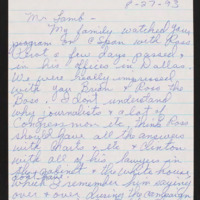 8-27-93
Mr. Lamb -
My family watched your
program on CSpan with Ross
Perot a few days ago
in his offices in Dallas.
We were really impressed
with you Brian & Ross the
Boss. I don't understand
why journalists & a lot of
Congressmen etc. think Ross
should have all the answers
with charts & etc. & Clinton
with all of his lawyers in
his cabinet & the White house
which I remember him saying
over & over during the campaign